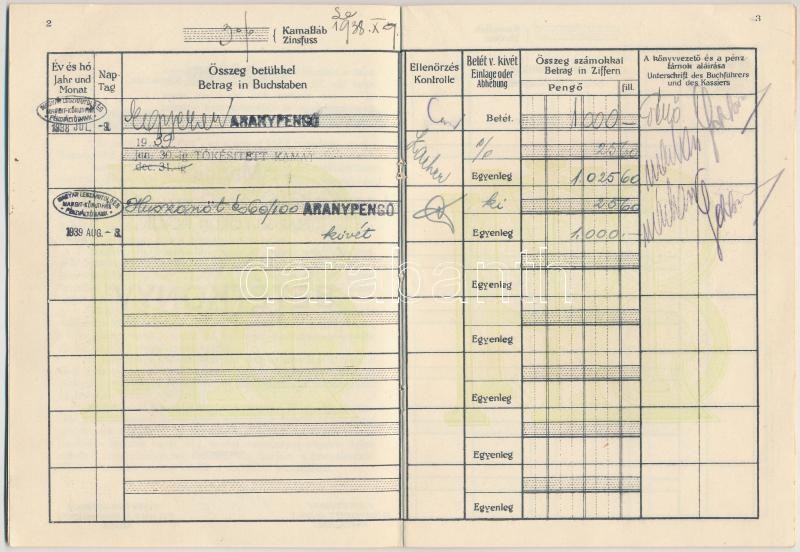 2
3
3% { Kamatláb
Zinsfuss
1938. X
Év és hó
Jahr und
Monat
Nap-
Tag
Összeg betűkkel
Betrag in Buchstaben
Ellenőrzés
Kontrolle
Betét v. kivét
Einlage oder
Abhebung
Összeg számokkal
Betrag in Ziffern
Pengő fill.
A könyvvezető és a pénz-
tárnok aláirása
Unterschrift des Buchführers
und des Kassiers
1938 JUL.
Egyezer ARANYPENGŐ
Betét. 1000 —
1939
jun. 30.-ig TŐKÉSITETT KAMAT
dec. 31.-ig
% 25 60
Egyenleg 1.025 60
1939 AUG. -8.
Huszonöt és 60/100 ARANYPENGŐ
kivét
ki 25 60
Egyenleg 1,000.—
Egyenleg
Egyenleg
Egyenleg
Egyenleg
Egyenleg
darabanth